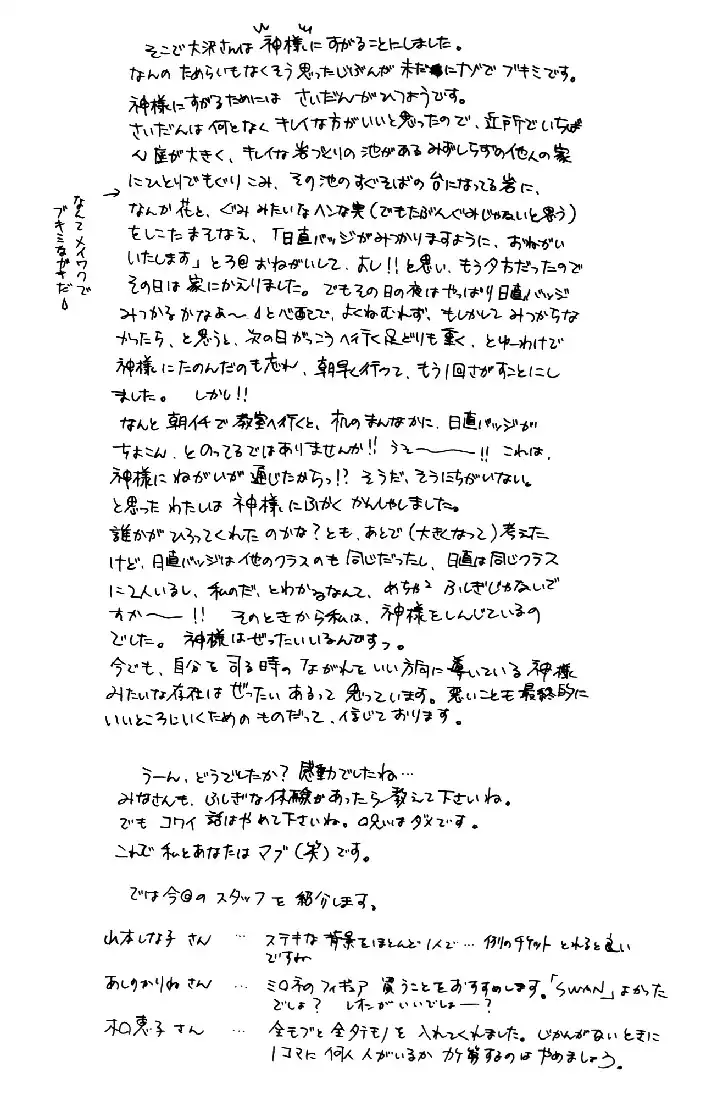 そこで大沢さんは神様にすがることにしました。
なんのためらいもなくそう思ったじぶんが未だにナゾでブキミです。
神様にすがるためには さいだんがひつようです。
さいだんは何となくキレイな方がいいと思ったので、近所でいちば
ん庭が大きく、キレイな岩づくりの池があるみずしらずの他人の家
にひとりでもぐりこみ、その池のすぐそばの台になってる岩に、
なんか花と、ぐみみたいなヘンな実(でもたぶんぐみじゃないと思う)
をしこたまそなえ、「日直バッジがみつかりますように、おねがい
いたします」と3回おねがいして、よし!!と思い、もう夕方だったので
その日は家にかえりました。でもその日の夜はやっぱり日直バッジ
みつかるかなあ〜とべそで、よくねむれず、もしかしてみつからな
かったら、と思うと、次の日がっこうへ行く足どりも重く、とゆーわけで
神様にたのんだのも忘れ、朝早く行って、もう1回さがすことにし
ました。 しかし!!
なんと朝イチで教室へ行くと、机のまんなかに、日直バッジが
ちょこん、とのってるではありませんか!! うえ〜〜!! これは、
神様にねがいが通じたからっ!? そうだ、そうにちがいない。
と思ったわたしは神様にふかくかんしゃしました。
誰かがひろってくれたのかな?とも、あとで(大きくなって)考えた
けど、日直バッジは他のクラスのも同じだったし、日直は同じクラス
に2人いるし、私のだ、とわかるなんて、めちゃ2 ふしぎじゃないで
すか〜!! そのときから私は、神様をしんじているの
でした。神様はぜったいいるんですっ。
今でも、自分を司る時のながれをいい方向に導いている神様
みたいな存在はぜったいあるって思っています。悪いことも最終的に
いいところにいくためのものだって、信じております。
なんてメイワクで
ブキミなガキだ
うーん、どうでしたか? 感動でしたね…
みなさんも、ふしぎな体験があったら教えて下さいね。
でもコワイ話はやめて下さいね。呪いはダメです。
これで私とあなたはマブ(笑)です。
では今回のスタッフを紹介します。
山本しな子さん … ステキな背景をほとんど1人で… 例のチケットとれると良い
ですね
あしのかりねさん … ミロネのフィギュア買うことをおすすめします。「SWAN」よかった
でしょ? レオンがいいでしょー?
恵子さん … 全モブと全タテモノを入れてくれました。じかんがないときに
1コマに何人人がいるかカケ算するのはやめましょう。